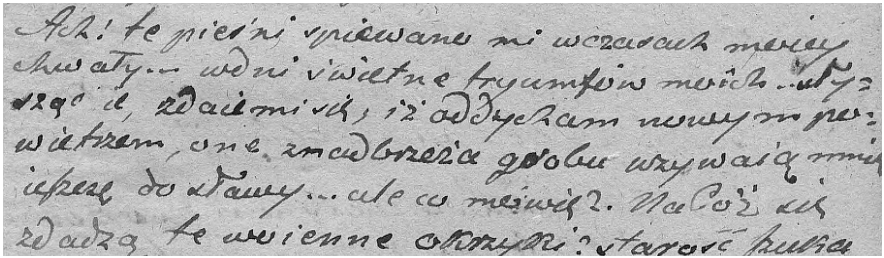 Ach! te pieśni spiewano mi wczasach moiey
chwały... wdni świetne tryumfów moich... sły=
sząc ie, zdaiemisię, iż oddycham nowym po=
wietrzem, one znadbrzeża grobu wzywaią mnie
ieszcze do sławy... ale co mówię?. Na Cóż się
zdadzą te woienne okrzyki? starość szuka